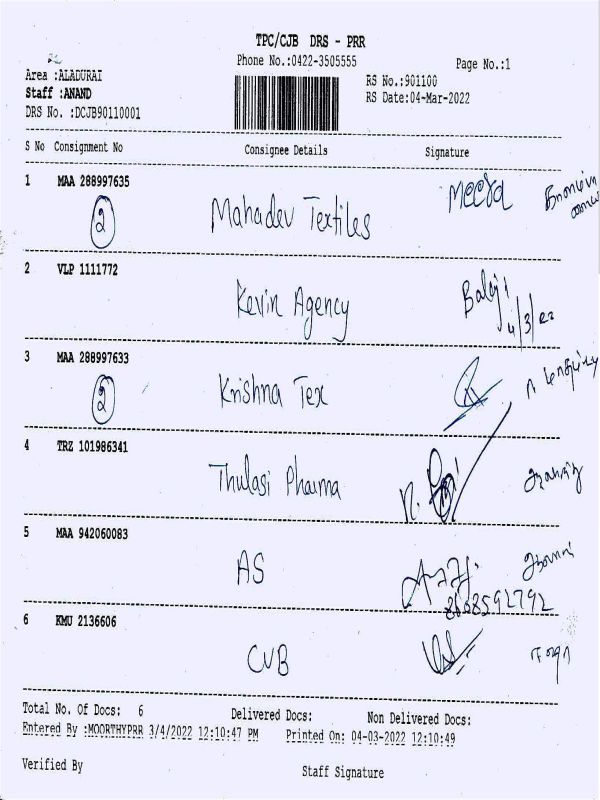 TPC/CJB DRS - PRR
Phone No.:0422-3505555
Page No.:1
Area :ALADURAI
Staff :ANAND
DRS No. :DCJB90110001
RS No.:901100
RS Date:04-Mar-2022
S No Consignment No Consignee Details Signature
1 MAA 288997635
2 Mahadev Textiles Meera
2 VLP 1111772
Kevin Agency Balaji
4/3/22
3 MAA 288997633
2 Krishna Tex
4 TRZ 101986341
Thulasi Pharma
5 MAA 942060083
AS
8668592792
6 KMU 2136606
CVB
Total No. Of Docs: 6 Delivered Docs: Non Delivered Docs:
Entered By :MOORTHYPRR 3/4/2022 12:10:47 PM Printed On: 04-03-2022 12:10:49
Verified By Staff Signature